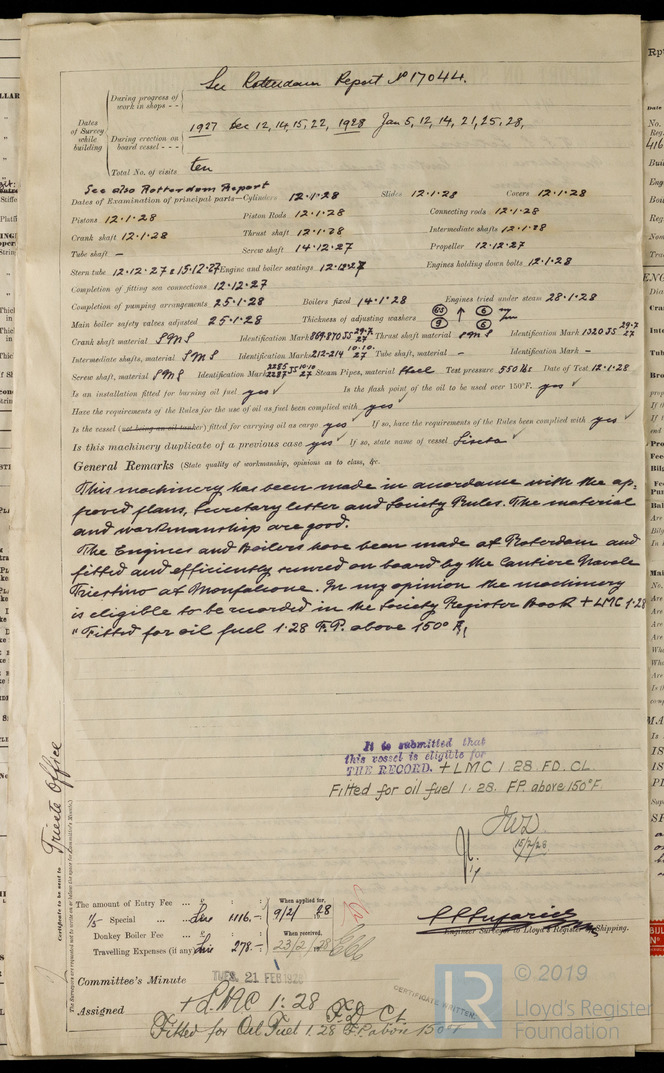 See Rotterdam Report No 17044.
Dates of Survey while building
During progress of work in shops - -
During erection on board vessel - - -
1927 Dec 12, 14, 15, 22, 1928 Jan 5, 12, 14, 21, 25, 28,
Total No. of visits ten
See also Rotterdam Report
Dates of Examination of principal parts—Cylinders 12.1.28 Slides 12.1.28 Covers 12.1.28
Pistons 12.1.28 Piston Rods 12.1.28 Connecting rods 12.1.28
Crank shaft 12.1.28 Thrust shaft 12.1.28 Intermediate shafts 12.1.28
Tube shaft - Screw shaft 14.12.27 Propeller 12.12.27
Stern tube 12.12.27 & 15.12.27 Engine and boiler seatings 12.12.27 Engines holding down bolts 12.1.28
Completion of fitting sea connections 12.12.27
Completion of pumping arrangements 25.1.28 Boilers fixed 14.1.28 Engines tried under steam 28.1.28
Main boiler safety valves adjusted 25.1.28 Thickness of adjusting washers
Crank shaft material SMS Identification Mark 869-870 JS 29.7.27 Thrust shaft material SMS Identification Mark 1320 JS 29.7.27
Intermediate shafts, material SMS Identification Marks 212-214 10.10.27 Tube shaft, material - Identification Mark -
Screw shaft, material SMS Identification Mark 2285 2287 JS 10.10.27 Steam Pipes, material Steel Test pressure 550 lbs Date of Test 12.1.28
Is an installation fitted for burning oil fuel yes ✓ Is the flash point of the oil to be used over 150°F. yes ✓
Have the requirements of the Rules for the use of oil as fuel been complied with yes ✓
Is the vessel (not being an oil tanker) fitted for carrying oil as cargo yes ✓ If so, have the requirements of the Rules been complied with yes ✓
Is this machinery duplicate of a previous case yes ✓ If so, state name of vessel
General Remarks (State quality of workmanship, opinions as to class, &c.
This machinery has been made in accordance with the ap-
proved plans, Secretary letter and Society Rules. The material
and workmanship are good.
The Engines and Boilers have been made at Rotterdam and
fitted and efficiently secured on board by the Cantiere Navale
Triestino at Monfalcone. In my opinion the machinery
is eligible to be recorded in the Society Register Book + LMC 1.28
"Fitted for oil fuel 1.28 F.P. above 150° F.
It is submitted that
this vessel is eligible for
THE RECORD. + LMC 1.28. FD. CL.
Fitted for oil fuel 1.28. FP. above 150°F.
JWD
15/2/28
Certificate to be sent to Trieste Office
(The Surveyors are requested not to write on or below the space for Committee's Minute.)
The amount of Entry Fee ... " : :
1/5 Special ... ... Lire 1116.-
Donkey Boiler Fee ... " : :
Travelling Expenses (if any) Lire 278.-
When applied for, 9/2/1928
When received, 23/2/1928
Engineer Surveyor to Lloyd's Register of Shipping.
Committee's Minute TUES. 21 FEB 1928
Assigned + LMC 1.28 F.D. CL.
Fitted for Oil Fuel 1.28 F.P. above 150°F
CERTIFICATE WRITTEN
LR
© 2019
Lloyd's Register
Foundation